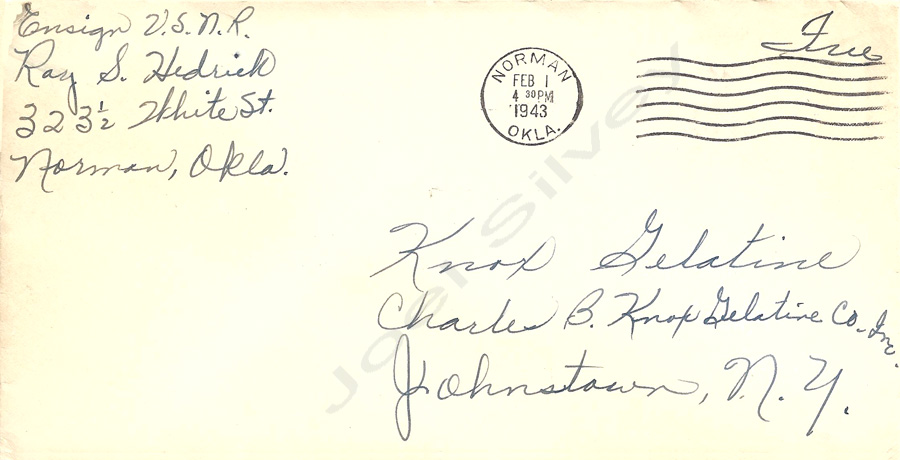 Ensign U.S.N.R.
Ray S. Hedrick
323½ White St.
Norman, Okla.
Free
NORMAN
FEB 1
4 30 PM
1943
OKLA.
Knox Gelatine
Charles B. Knox Gelatine Co. Inc.
Johnstown, N.Y.
Joel Silvey